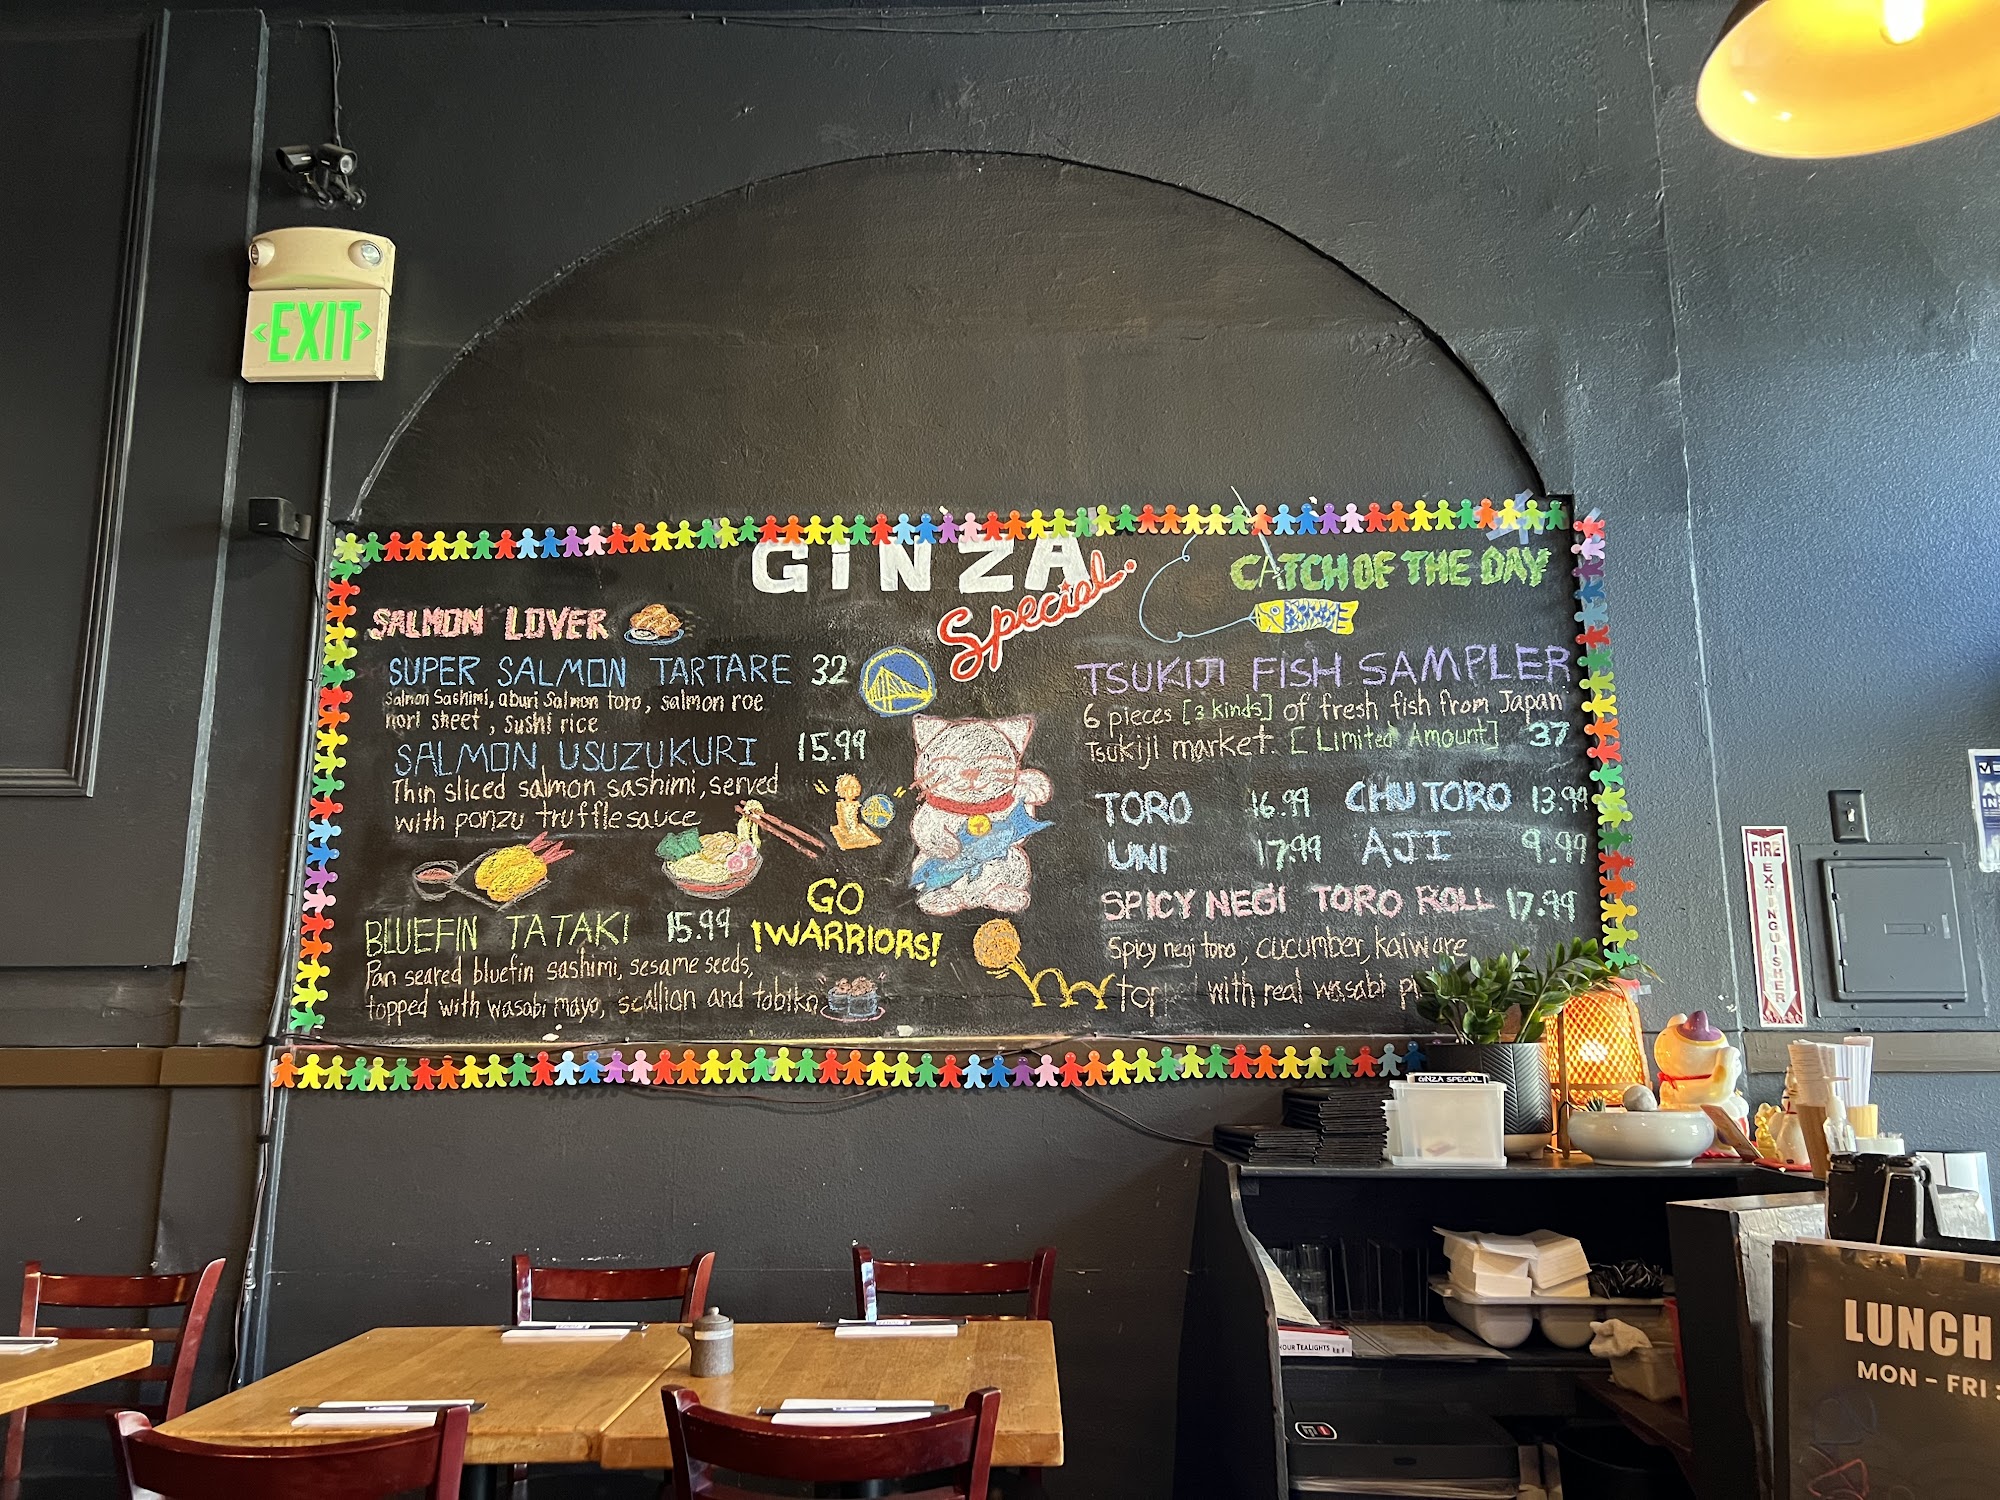 EXIT
GINZA
Special.
SALMON LOVER
SUPER SALMON TARTARE 32
Salmon Sashimi, aburi Salmon toro, salmon roe
nori sheet, sushi rice
SALMON USUZUKURI 15.99
Thin sliced salmon sashimi, served
with ponzu truffle sauce
BLUEFIN TATAKI 15.99
Pan seared bluefin sashimi, sesame seeds,
topped with wasabi mayo, scallion and tobiko
GO
!WARRIORS!
CATCH OF THE DAY
TSUKIJI FISH SAMPLER
6 pieces [3 kinds] of fresh fish from Japan
Tsukiji market. [Limited Amount] 37
TORO 16.99 CHU TORO 13.99
UNI 17.99 AJI 9.99
SPICY NEGI TORO ROLL 17.99
Spicy negi toro, cucumber, kaiware
topped with real wasabi
FIRE
EXTINGUISHER
GINZA SPECIAL
HOUR TEALIGHTS
LUNCH
MON - FRI